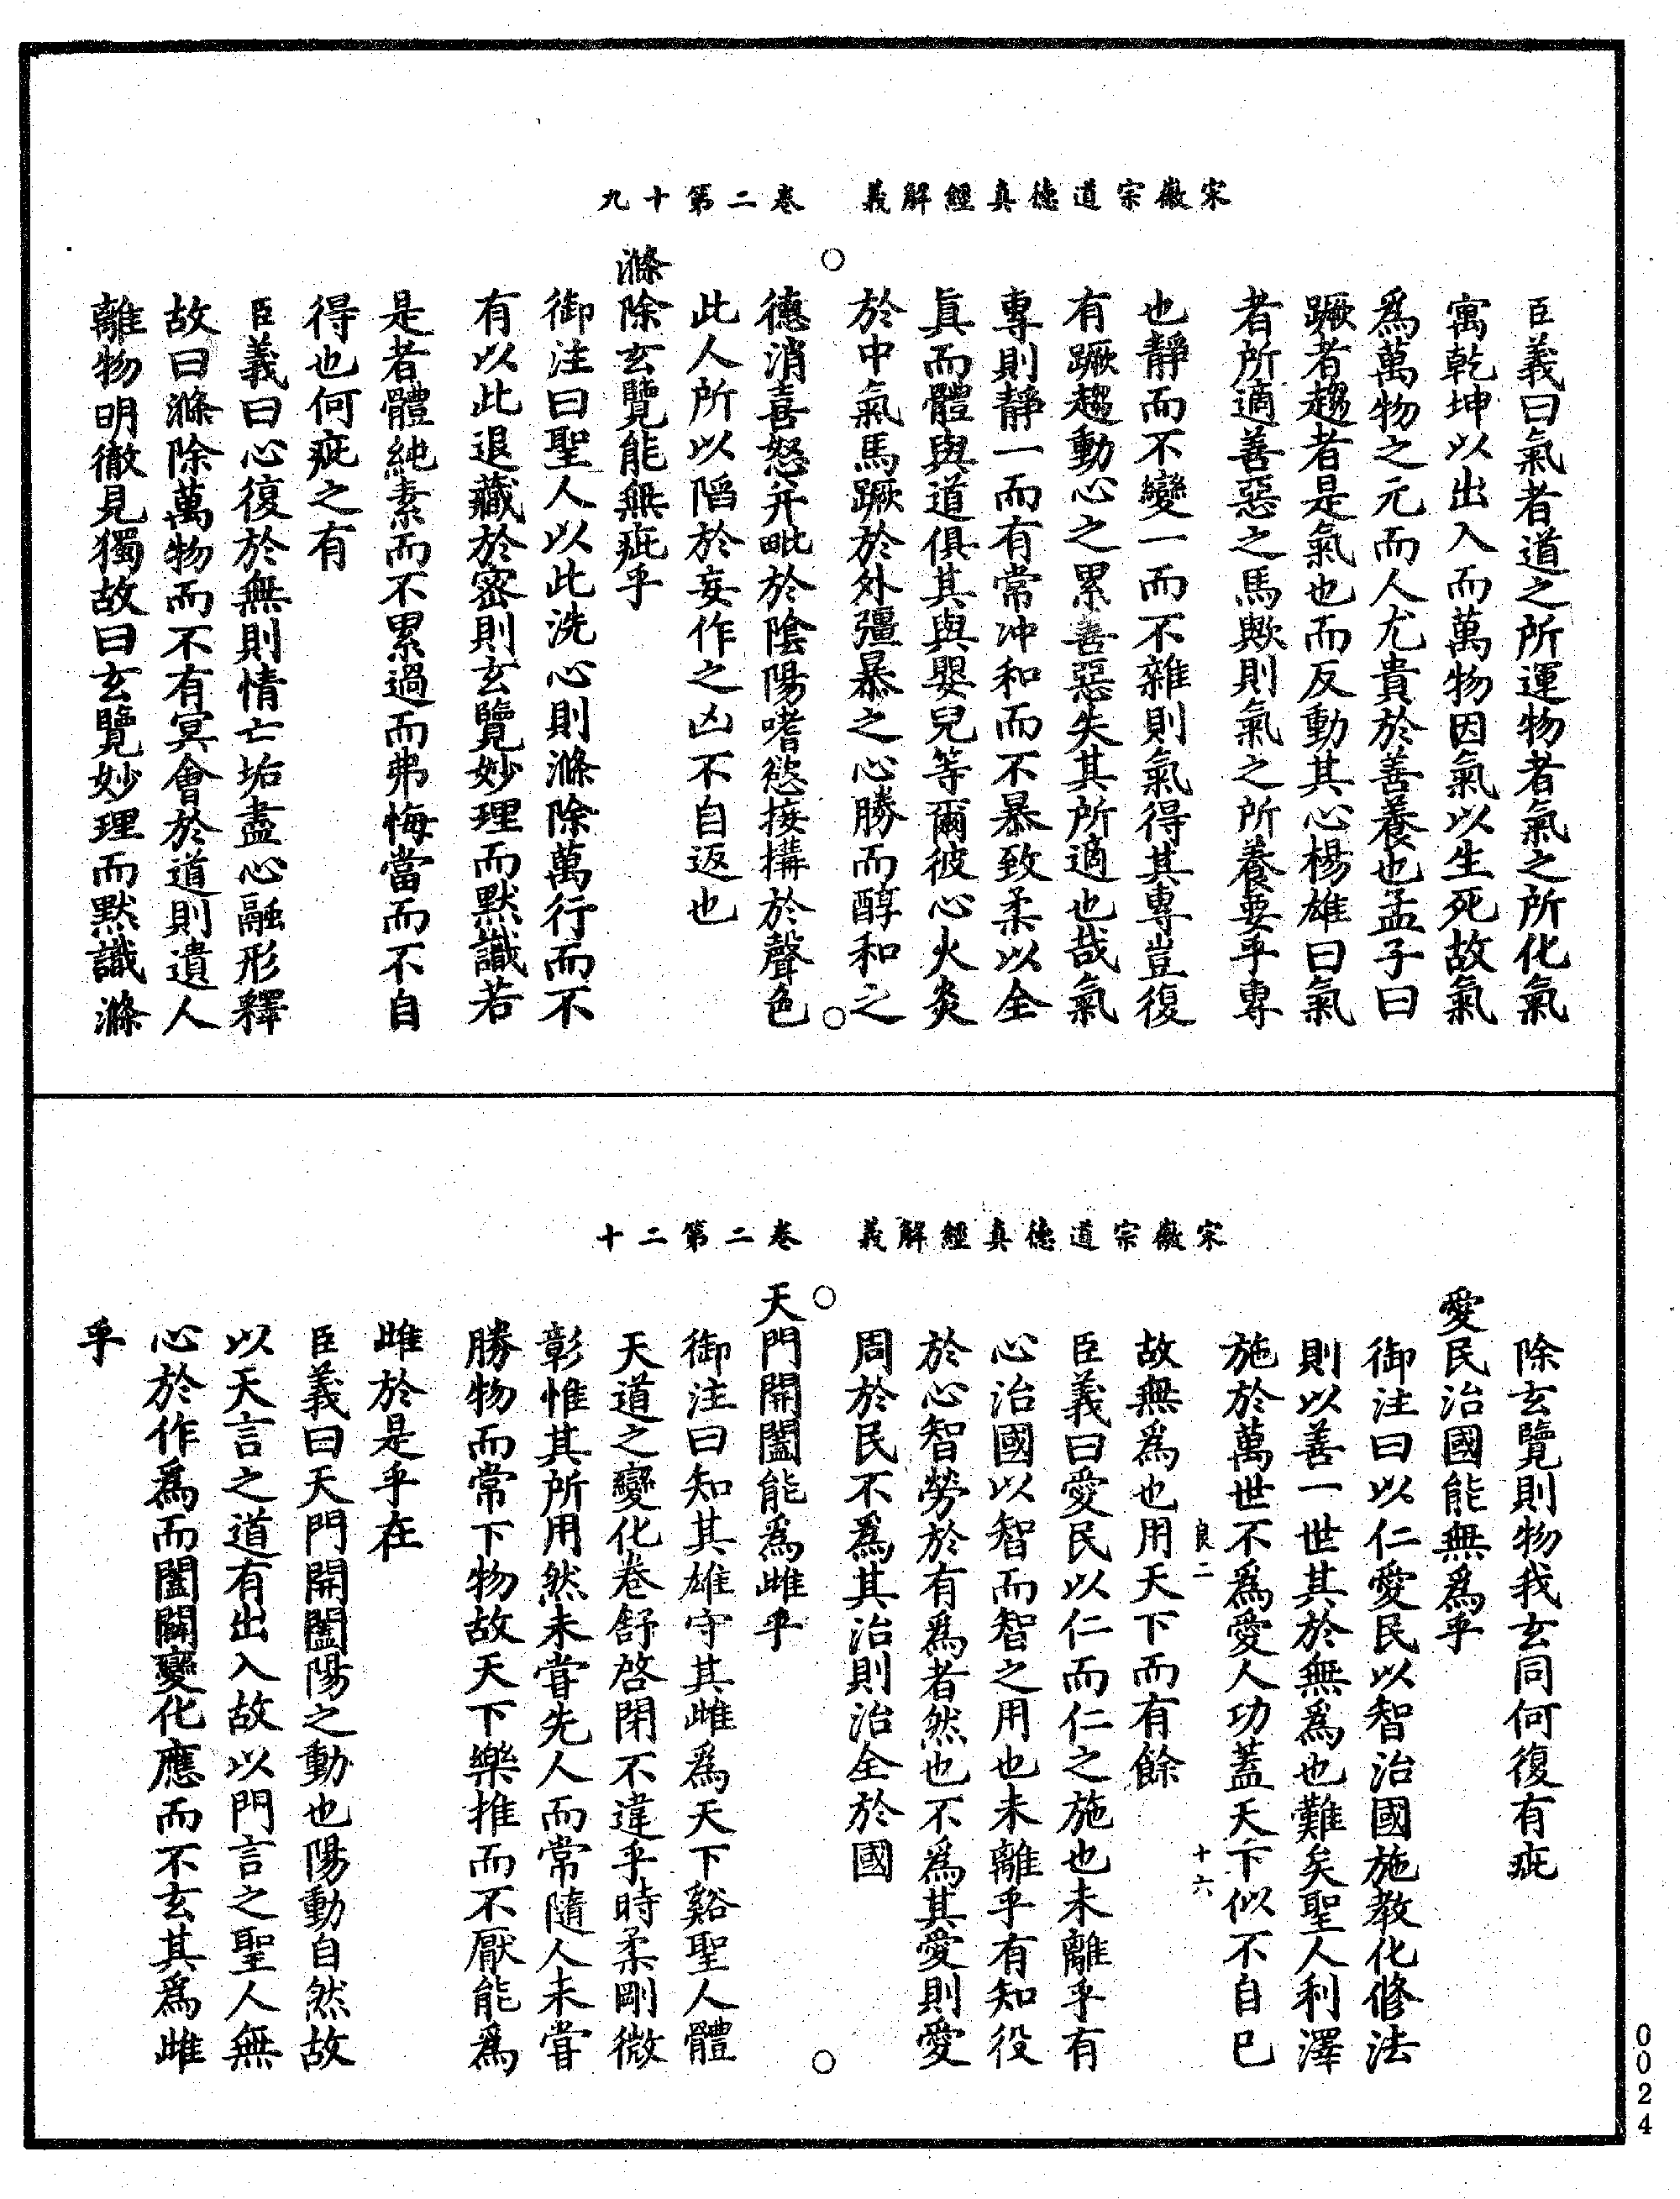 宋徽宗道德真經解義　卷二第十九
臣義曰氣者道之所運物者氣之所化氣
寓乾坤以出入而萬物因氣以生死故氣
爲萬物之元而人尤貴於善養也孟子曰
蹶者趨者是氣也而反動其心楊雄曰氣
者所適善惡之馬歟則氣之所養要乎專
也靜而不變一而不雜則氣得其專豈復
有蹶趨動心之累善惡失其所適也哉氣
專則靜一而有常冲和而不暴致柔以全
眞而體與道俱其與嬰兒等爾彼心火炎
於中氣馬蹶於外彊暴之心勝而醇和之
德消喜怒并毗於陰陽嗜慾接搆於聲色
此人所以陷於妄作之凶不自返也
滌除玄覽能無疵乎
御注曰聖人以此洗心則滌除萬行而不
有以此退藏於密則玄覽妙理而默識若
是者體純素而不累過而弗悔當而不自
得也何疵之有
臣義曰心復於無則情亡垢盡心融形釋
故曰滌除萬物而不有冥會於道則遺人
離物明徹見獨故曰玄覽妙理而默識滌
宋徽宗道德真經解義　卷二第二十
除玄覽則物我玄同何復有疵
愛民治國能無爲乎
御注曰以仁愛民以智治國施教化修法
則以善一世其於無爲也難矣聖人利澤
施於萬世不爲愛人功蓋天下似不自巳
良二　十六
故無爲也用天下而有餘
臣義曰愛民以仁而仁之施也未離乎有
心治國以智而智之用也未離乎有知役
於心智勞於有爲者然也不爲其愛則愛
周於民不爲其治則治全於國
天門開闔能爲雌乎
御注曰知其雄守其雌爲天下谿聖人體
天道之變化卷舒啓閉不違乎時柔剛微
彰惟其所用然未甞先人而常隨人未甞
勝物而常下物故天下樂推而不厭能爲
雌於是乎在
臣義曰天門開闔陽之動也陽動自然故
以天言之道有出入故以門言之聖人無
心於作爲而闔闢變化應而不玄其爲雌
乎
0024